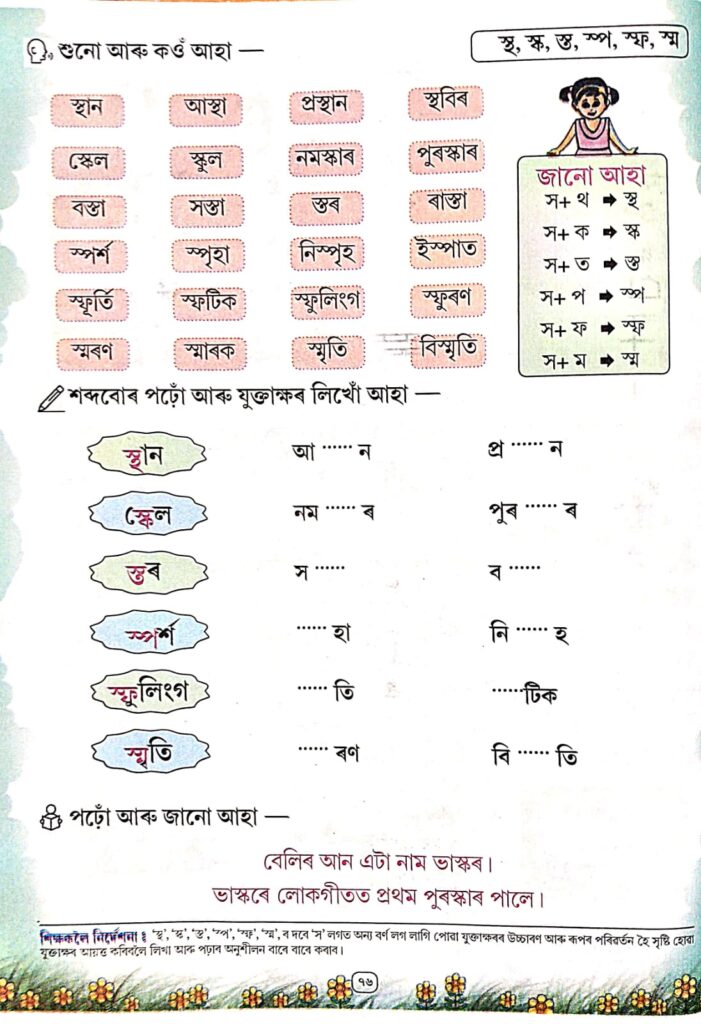 শুনো আৰু কওঁ আহা —
স্থ, স্ক, স্ত, স্প, স্ফ, স্ম
স্থান আস্থা প্ৰস্থান স্থবিৰ
স্কেল স্কুল নমস্কাৰ পুৰস্কাৰ
বস্তা সস্তা স্তৰ ৰাস্তা
স্পৰ্শ স্পৃহা নিস্পৃহ ইস্পাত
স্ফূৰ্তি স্ফটিক স্ফুলিংগ স্ফুৰণ
স্মৰণ স্মাৰক স্মৃতি বিস্মৃতি
জানো আহা
স+ থ ➡ স্থ
স+ ক ➡ স্ক
স+ ত ➡ স্ত
স+ প ➡ স্প
স+ ফ ➡ স্ফ
স+ ম ➡ স্ম
শব্দবোৰ পঢ়োঁ আৰু যুক্তাক্ষৰ লিখোঁ আহা —
স্থান আ ...... ন প্ৰ ...... ন
স্কেল নম ...... ৰ পুৰ ...... ৰ
স্তৰ স ...... ব ......
স্পৰ্শ ...... হা নি ...... হ
স্ফুলিংগ ...... তি ......টিক
স্মৃতি ...... ৰণ বি ...... তি
পঢ়োঁ আৰু জানো আহা —
বেলিৰ আন এটা নাম ভাস্কৰ।
ভাস্কৰে লোকগীতত প্ৰথম পুৰস্কাৰ পালে।
শিক্ষকলৈ নিৰ্দেশনা ঃ ‘স্থ’, ‘স্ক’, ‘স্ত’, ‘স্প’, ‘স্ফ’, ‘স্ম’, ৰ দৰে ‘স’ লগত অন্য বৰ্ণ লগ লাগি পোৱা যুক্তাক্ষৰৰ উচ্চাৰণ আৰু ৰূপৰ পৰিৱৰ্তন হৈ সৃষ্টি হোৱা
যুক্তাক্ষৰ আয়ত্ত কৰিবলৈ লিখা আৰু পঢ়াৰ অনুশীলন বাৰে বাৰে কৰাব।
৭৬